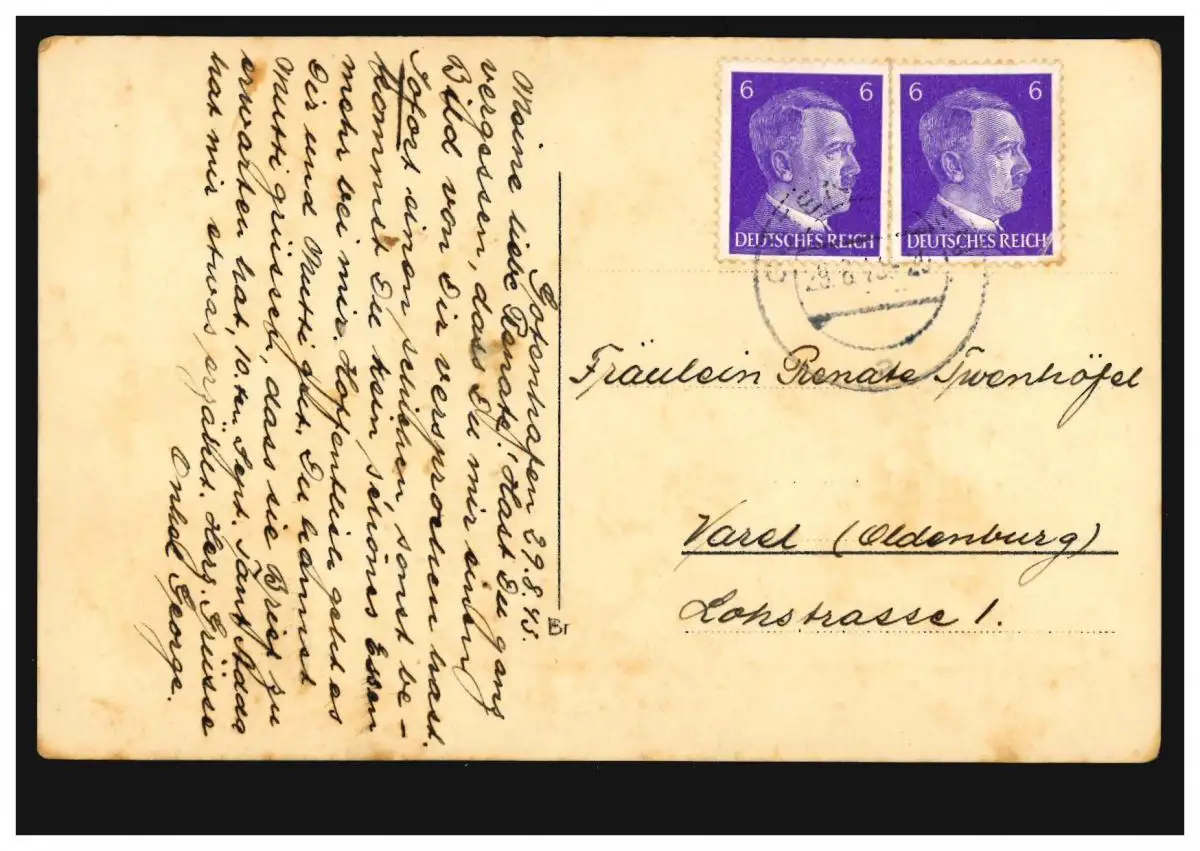 Gotenhafen 29.8.43.
Meine liebe Renate! Hast Du ganz
vergessen, dass Du mir ein
Bild von Dir versprochen hast.
Sofort einen schicken, sonst be-
kommst Du kein schönes Essen
mehr bei mir. Hoffentlich geht es
Dir und Mutti gut. Du kannst
Mutti grüssen, dass sie Brief zu
erwarten hat, 10.ten Sept. Tant Adda
hat mir etwas erzählt. Herz. Grüsse
Onkel George.
6 6
DEUTSCHES REICH
6 6
DEUTSCHES REICH
Fräulein Renate Twenhöfel
Varel (Oldenburg)
Lohstrasse 1.
Br